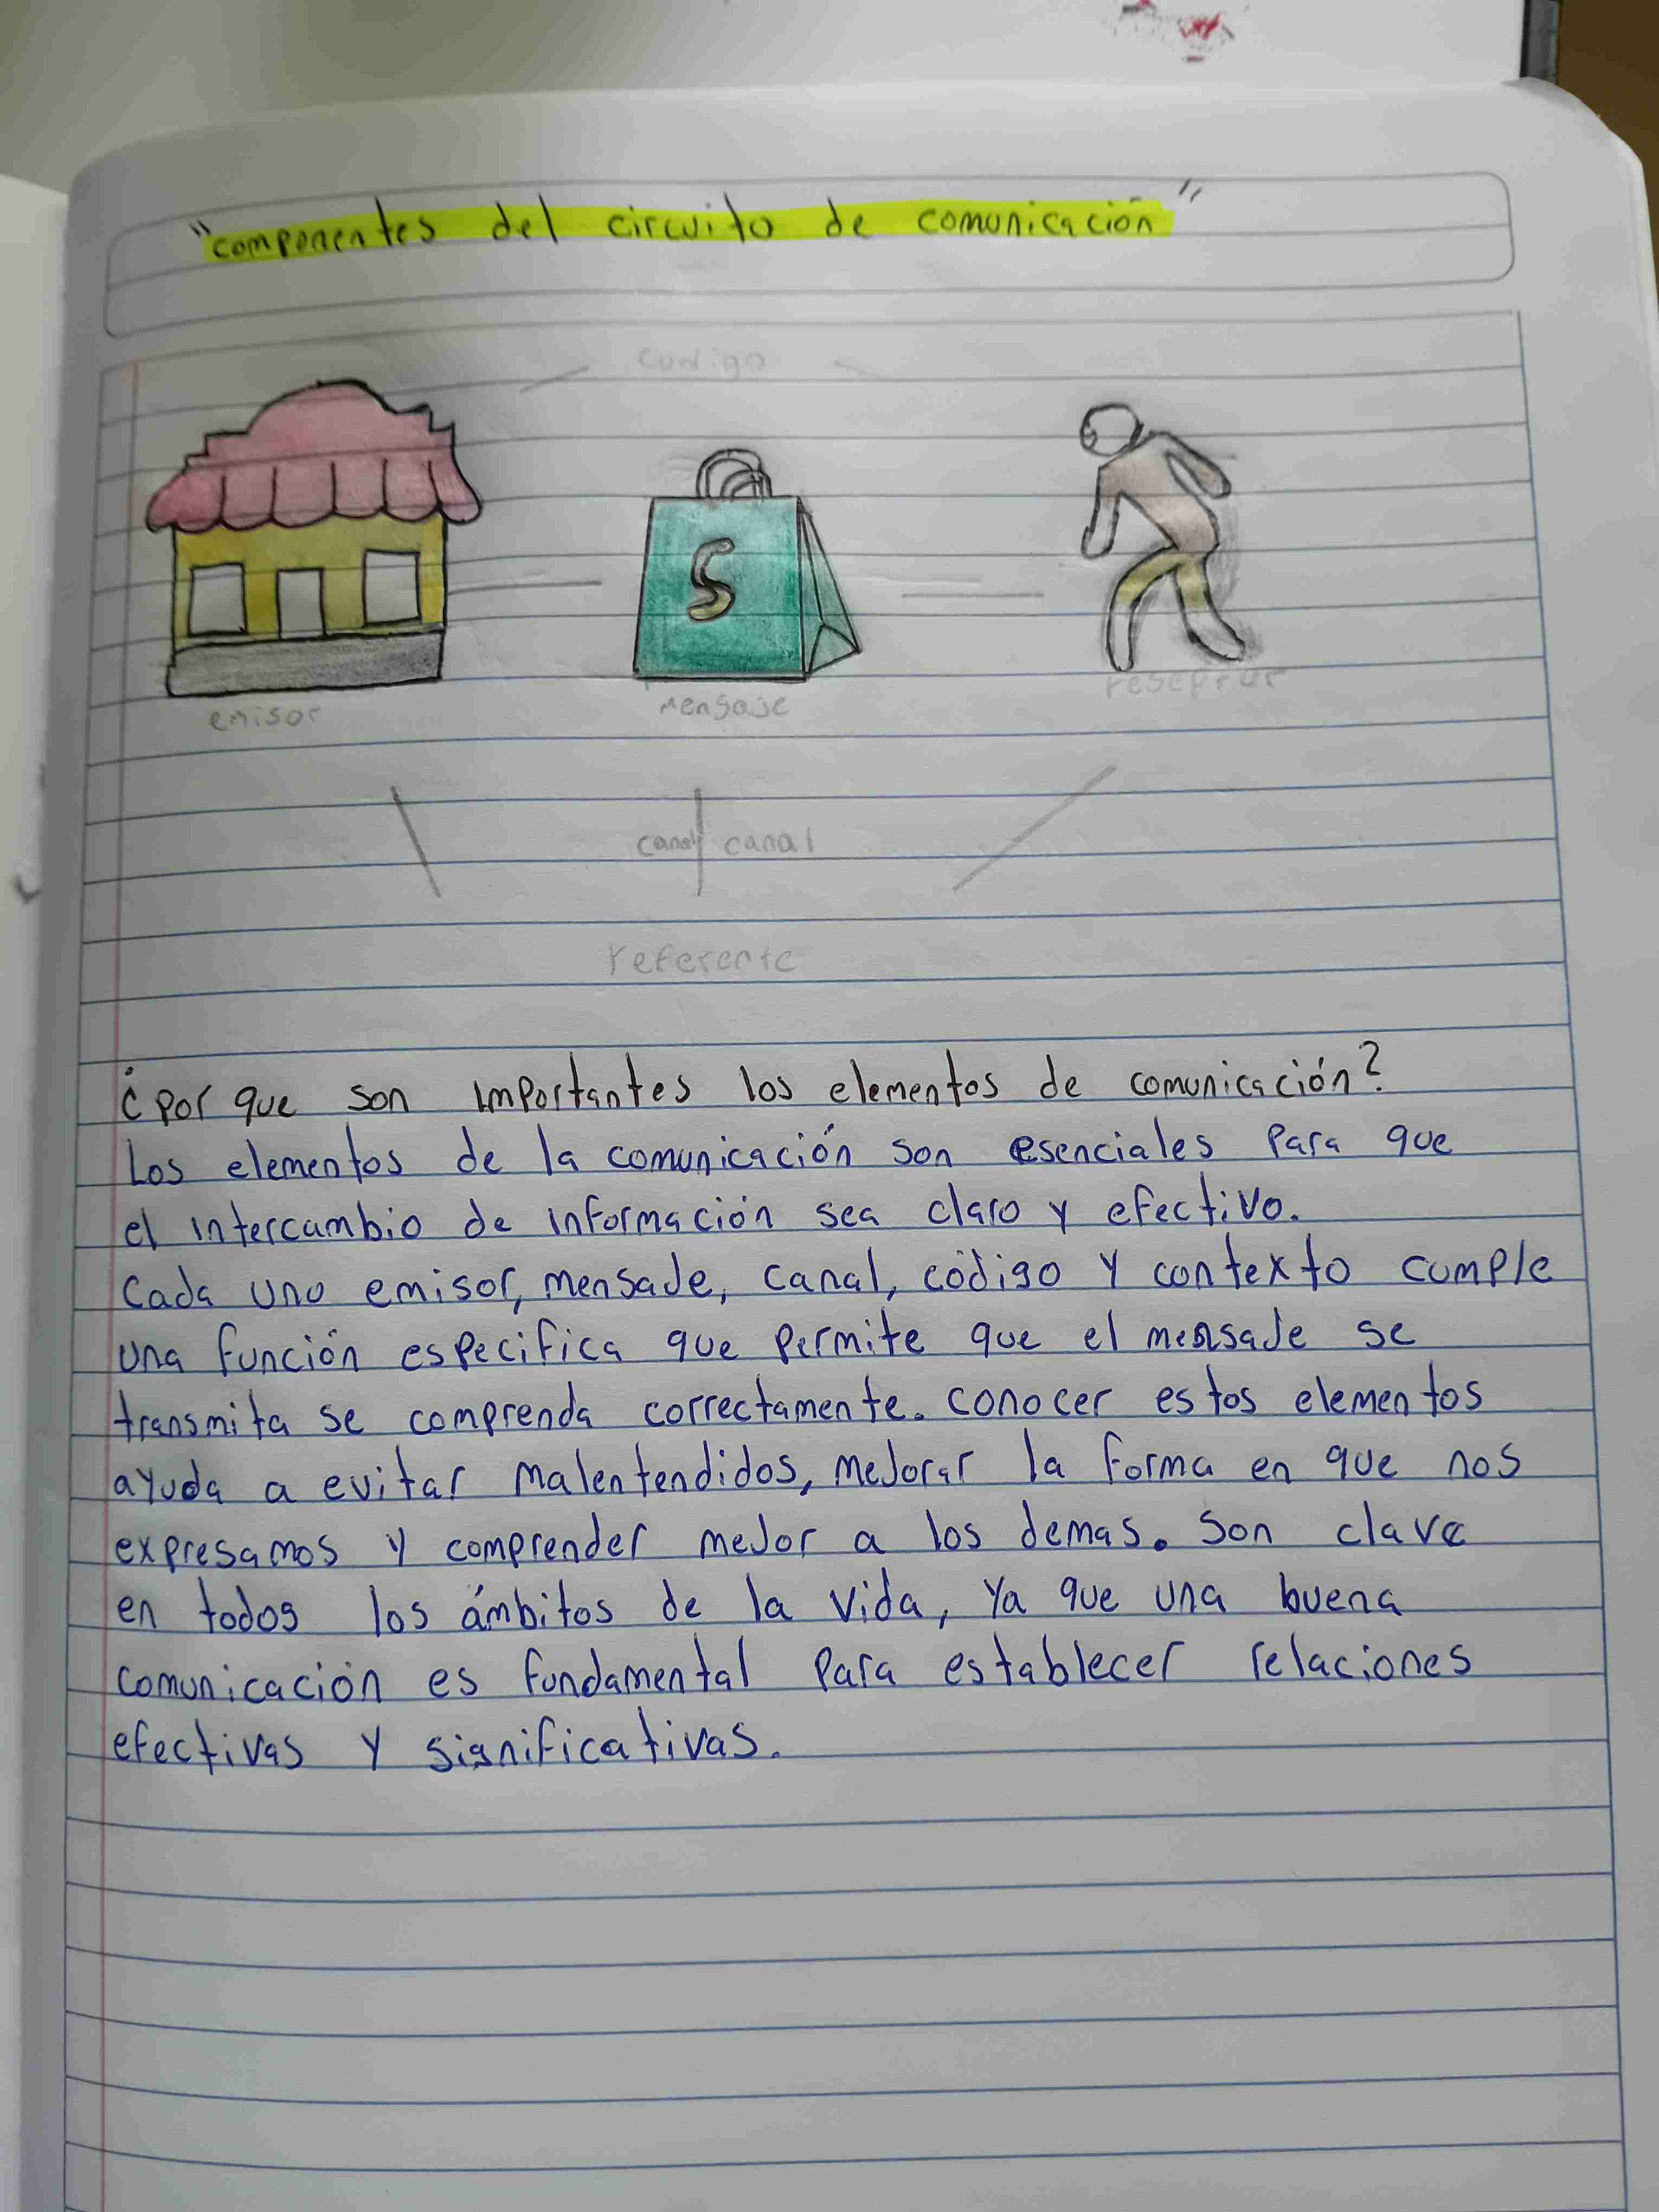 "componentes del circuito de comunicación"
codigo
S
emisor
mensaje
reseptor
canal canal
referente
¿por que son importantes los elementos de comunicación?
Los elementos de la comunicación son esenciales para que
el intercambio de información sea claro y efectivo.
Cada uno emisor, mensade, canal, código y contexto cumple
una función especifica que permite que el mensade se
transmita se comprenda correctamente. conocer estos elementos
ayuda a evitar malentendidos, mejorar la forma en que nos
expresamos y comprender mejor a los demas. Son clave
en todos los ámbitos de la vida, ya que una buena
comunicación es fundamental para establecer relaciones
efectivas y significativas.